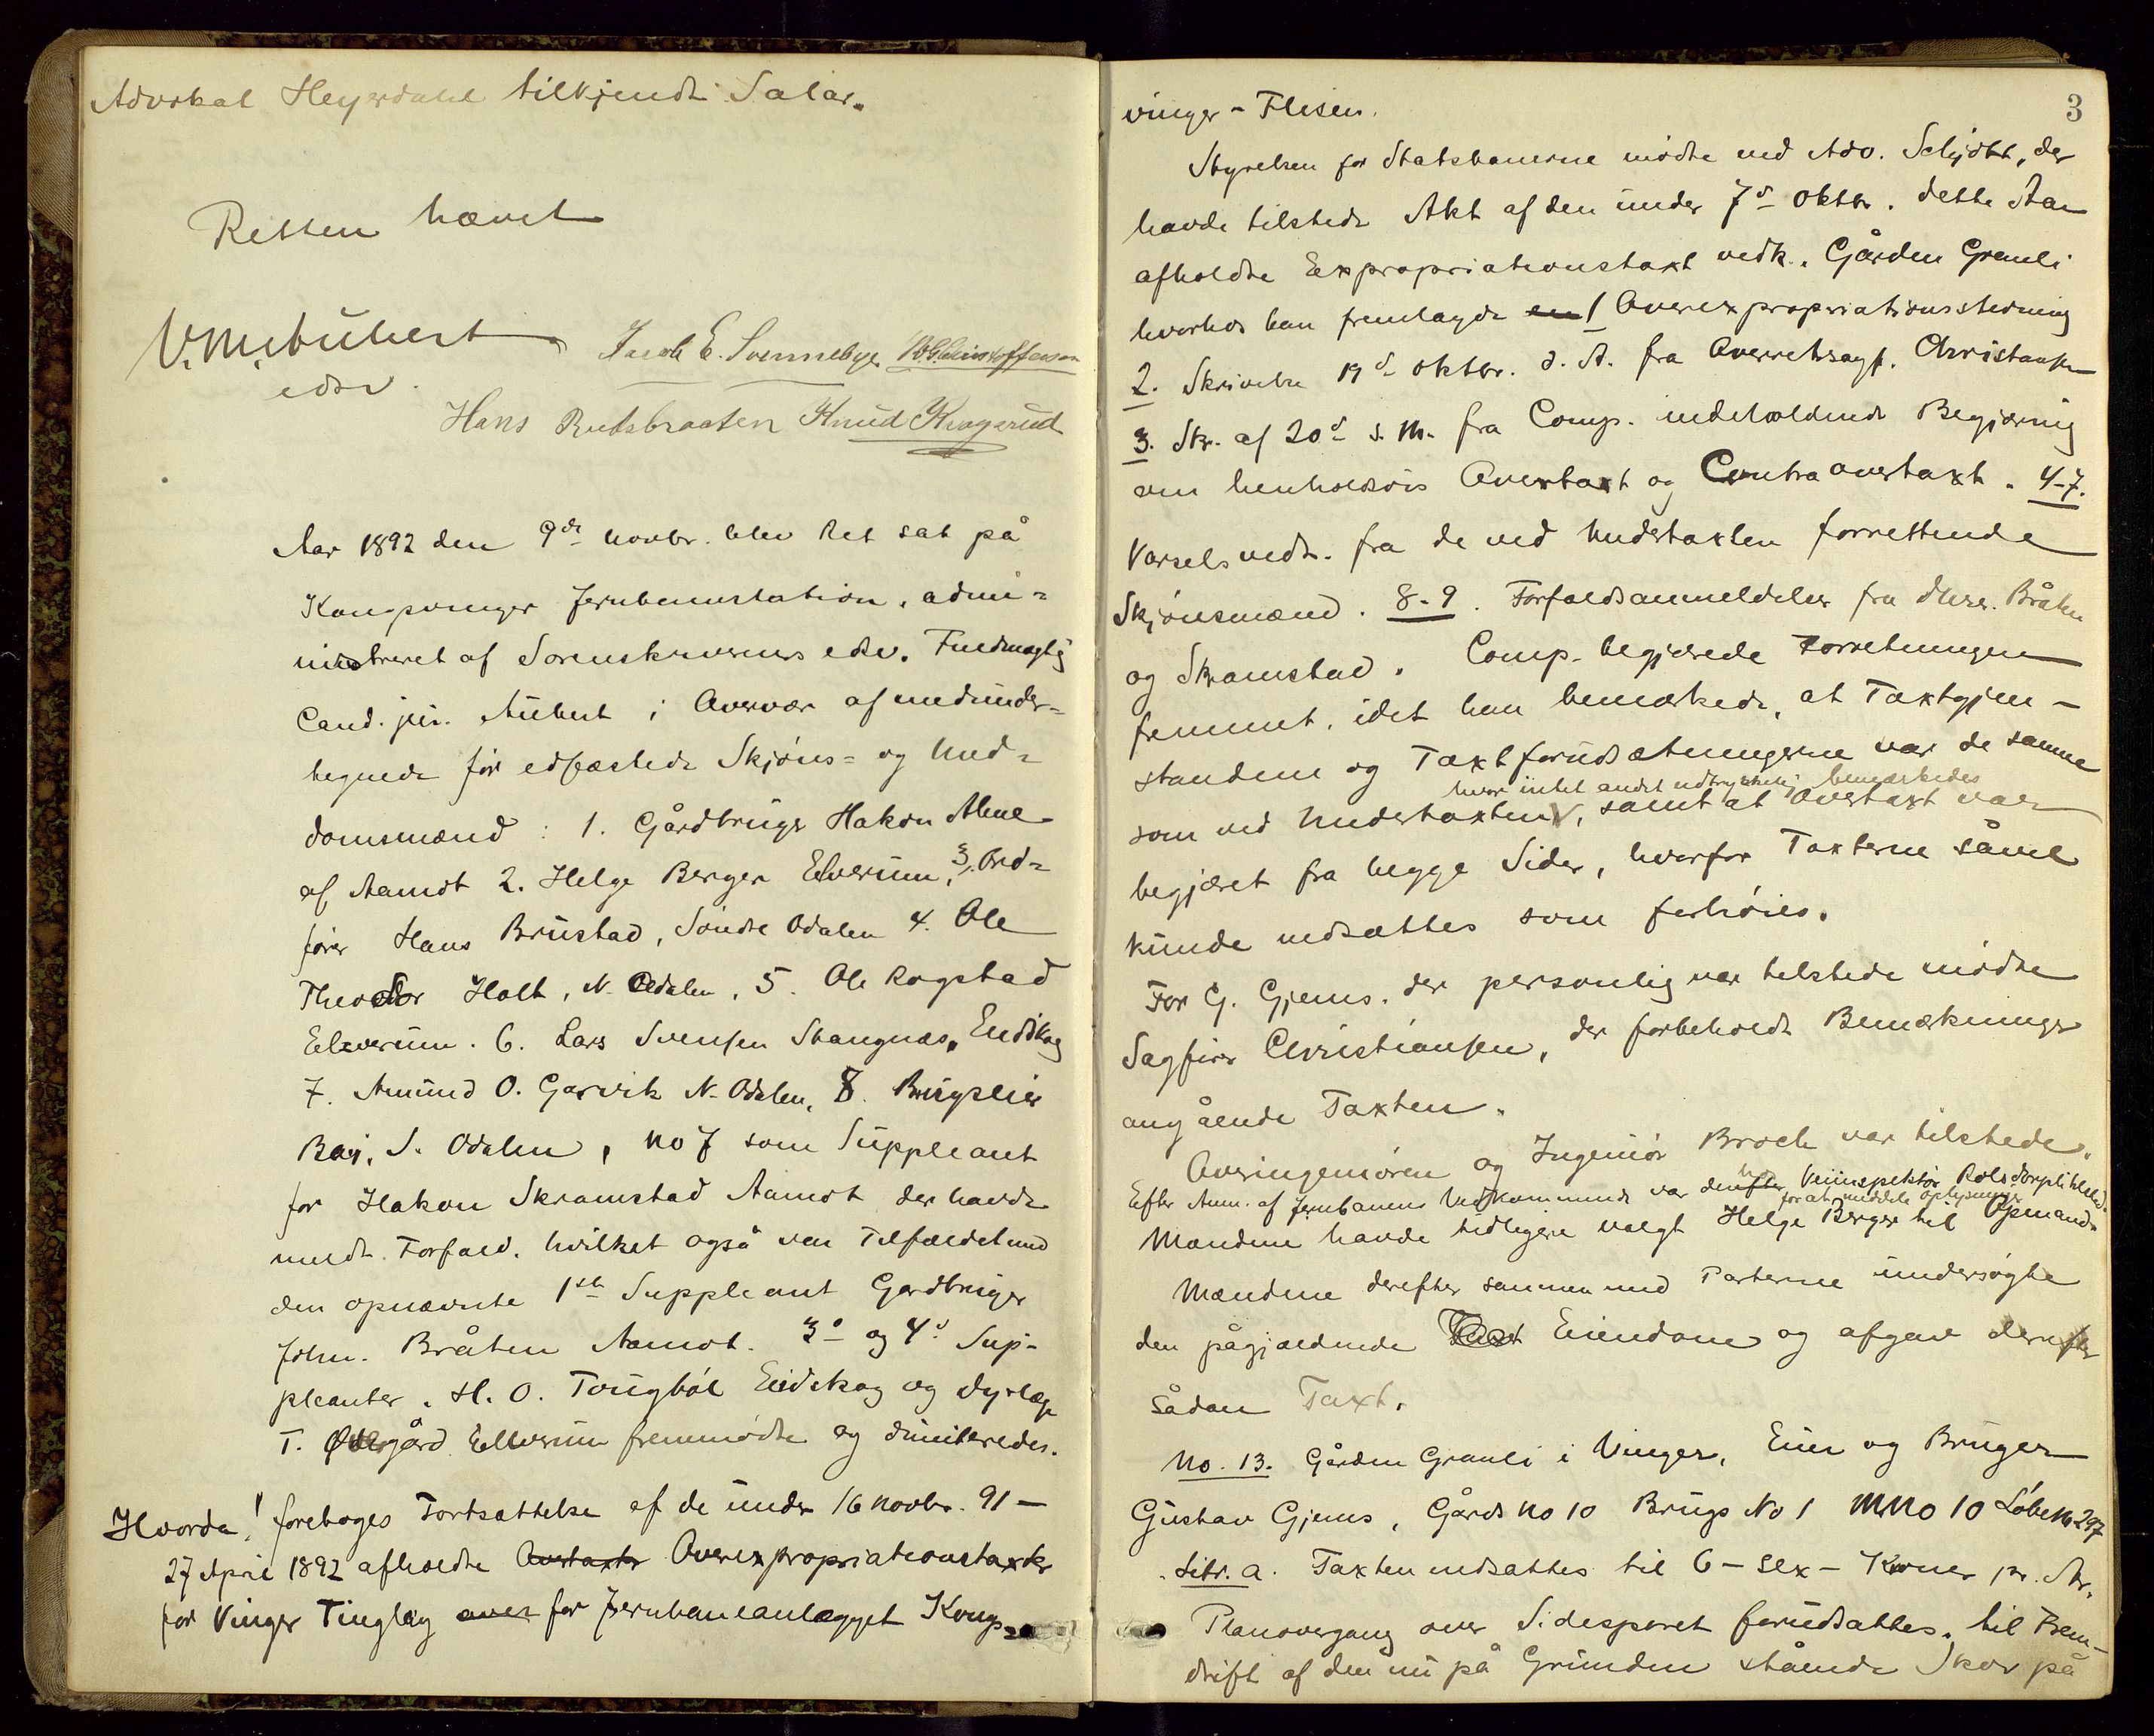 Advokat Heyerdahl tilkjendt Salær.
Retten hævet
V. M. Aubert
edsv.
Jacob E. Svennebye
Hans Rudsbraaten Knud Krogsrud
Aar 1892 den 9de Novbr. blev Ret sat på
Kongsvinger Jernbanestation, admi-
nistreret af Sorenskriverens edsv. Fuldmægtig
Cand. jur. Aubert i Overvær af medunder-
tegnede før edfæstede Skjöns- og Med-
domsmænd: 1. Gårdbruger Hakon Alme
af Aamot 2. Helge Berger Elverum, 3. Ord-
förer Hans Brustad, Söndre Odalen 4. Ole
Theodor Holt, N. Odalen, 5. Ole Rogstad
Elverum. 6. Lars Svensen Stangnæs, Eidskog
7. Amund O. Garvik N. Odalen, 8. Brugseier
Berj, S. Odalen, No 7 som Suppleant
for Hakon Skramstad Aamot der havde
meldt Forfald, hvilket også var Tilfældet med
den opnævnte 1ste Suppleant Gardbruger
John. Bråten Aamot. 3d og 4d Sup-
pleanter, H. O. Tougböl Eidskog og Dyrlæge
T. Övergård Elverum fremmödte og dimitteredes.
Hvorda! foretoges Fortsættelse af de under 16 Novbr. 91 –
27 April 1892 afholdte Overtaxter Overexpropriationstaxter
for Vinger Tinglag over for Jernbaneanlægget Kongs-
3
vinger - Flisen.
Styrelsen for Statsbanerne mödte ved Adv. Schjött, der
havde tilstede Akt af den under 7d Oktbr. dette Aar
afholdte Expropriationstaxt vedk. Gården Granli
hvorhos han fremlagde en 1 Overexpropriationsstevning
2. Skrivelse 19d Oktbr. d. A. fra Overretssagf. Christiansen
3. Skr. af 20d s. M. fra Comp. indeholdende Begjæring
om henholdsvis Overtaxt og Contraovertaxt. 4-7.
Varselsvedt. fra de ved Undertaxten forrettende
Skjönsmænd. 8-9. Forfaldsanmeldelser fra dhrr. Bråten
og Skramstad. Comp. begjærede Forretningen
fremmet, idet han bemærkede, at Taxtgjen-
standene og Taxtforudsætningerne var de samme
hvor intet andet udtrykkelig bemærkedes
som ved Undertaxten, samt at Overtaxt var
begjæret fra begge Sider, hvorfor Taxterne såvel
kunde nedsættes som forhöies.
For G. Gjems, der personlig var tilstede mödte
Sagförer Christiansen, der forbeholdt Bemærkninger
angående Taxten.
Overingeniören og Ingeniör Broch var tilstede.
Efter Anm. af Jernbanens Vedkommende var derhos Veiinspektör Rolsdorph tilstede
for at meddele Oplysninger
Mændene havde tidligere valgt Helge Berger til Opmand.
Mændene derefter sammen med Parterne undersøgte
den pågjældende Taxt Eiendom og afgav derefter
sådan Taxt.
No. 13. Gården Granli i Vinger, Eier og Bruger
Gustav Gjems, Gårds No 10 Brugs No 1 MNo 10 Löbe No 297
Litr. a. Taxten ndsattes til 6 – sex – Kroner pr. Ar.
Planovergang over Sidesporet forudsættes til Frem-
drift af den nu på Grunden stående Skov på